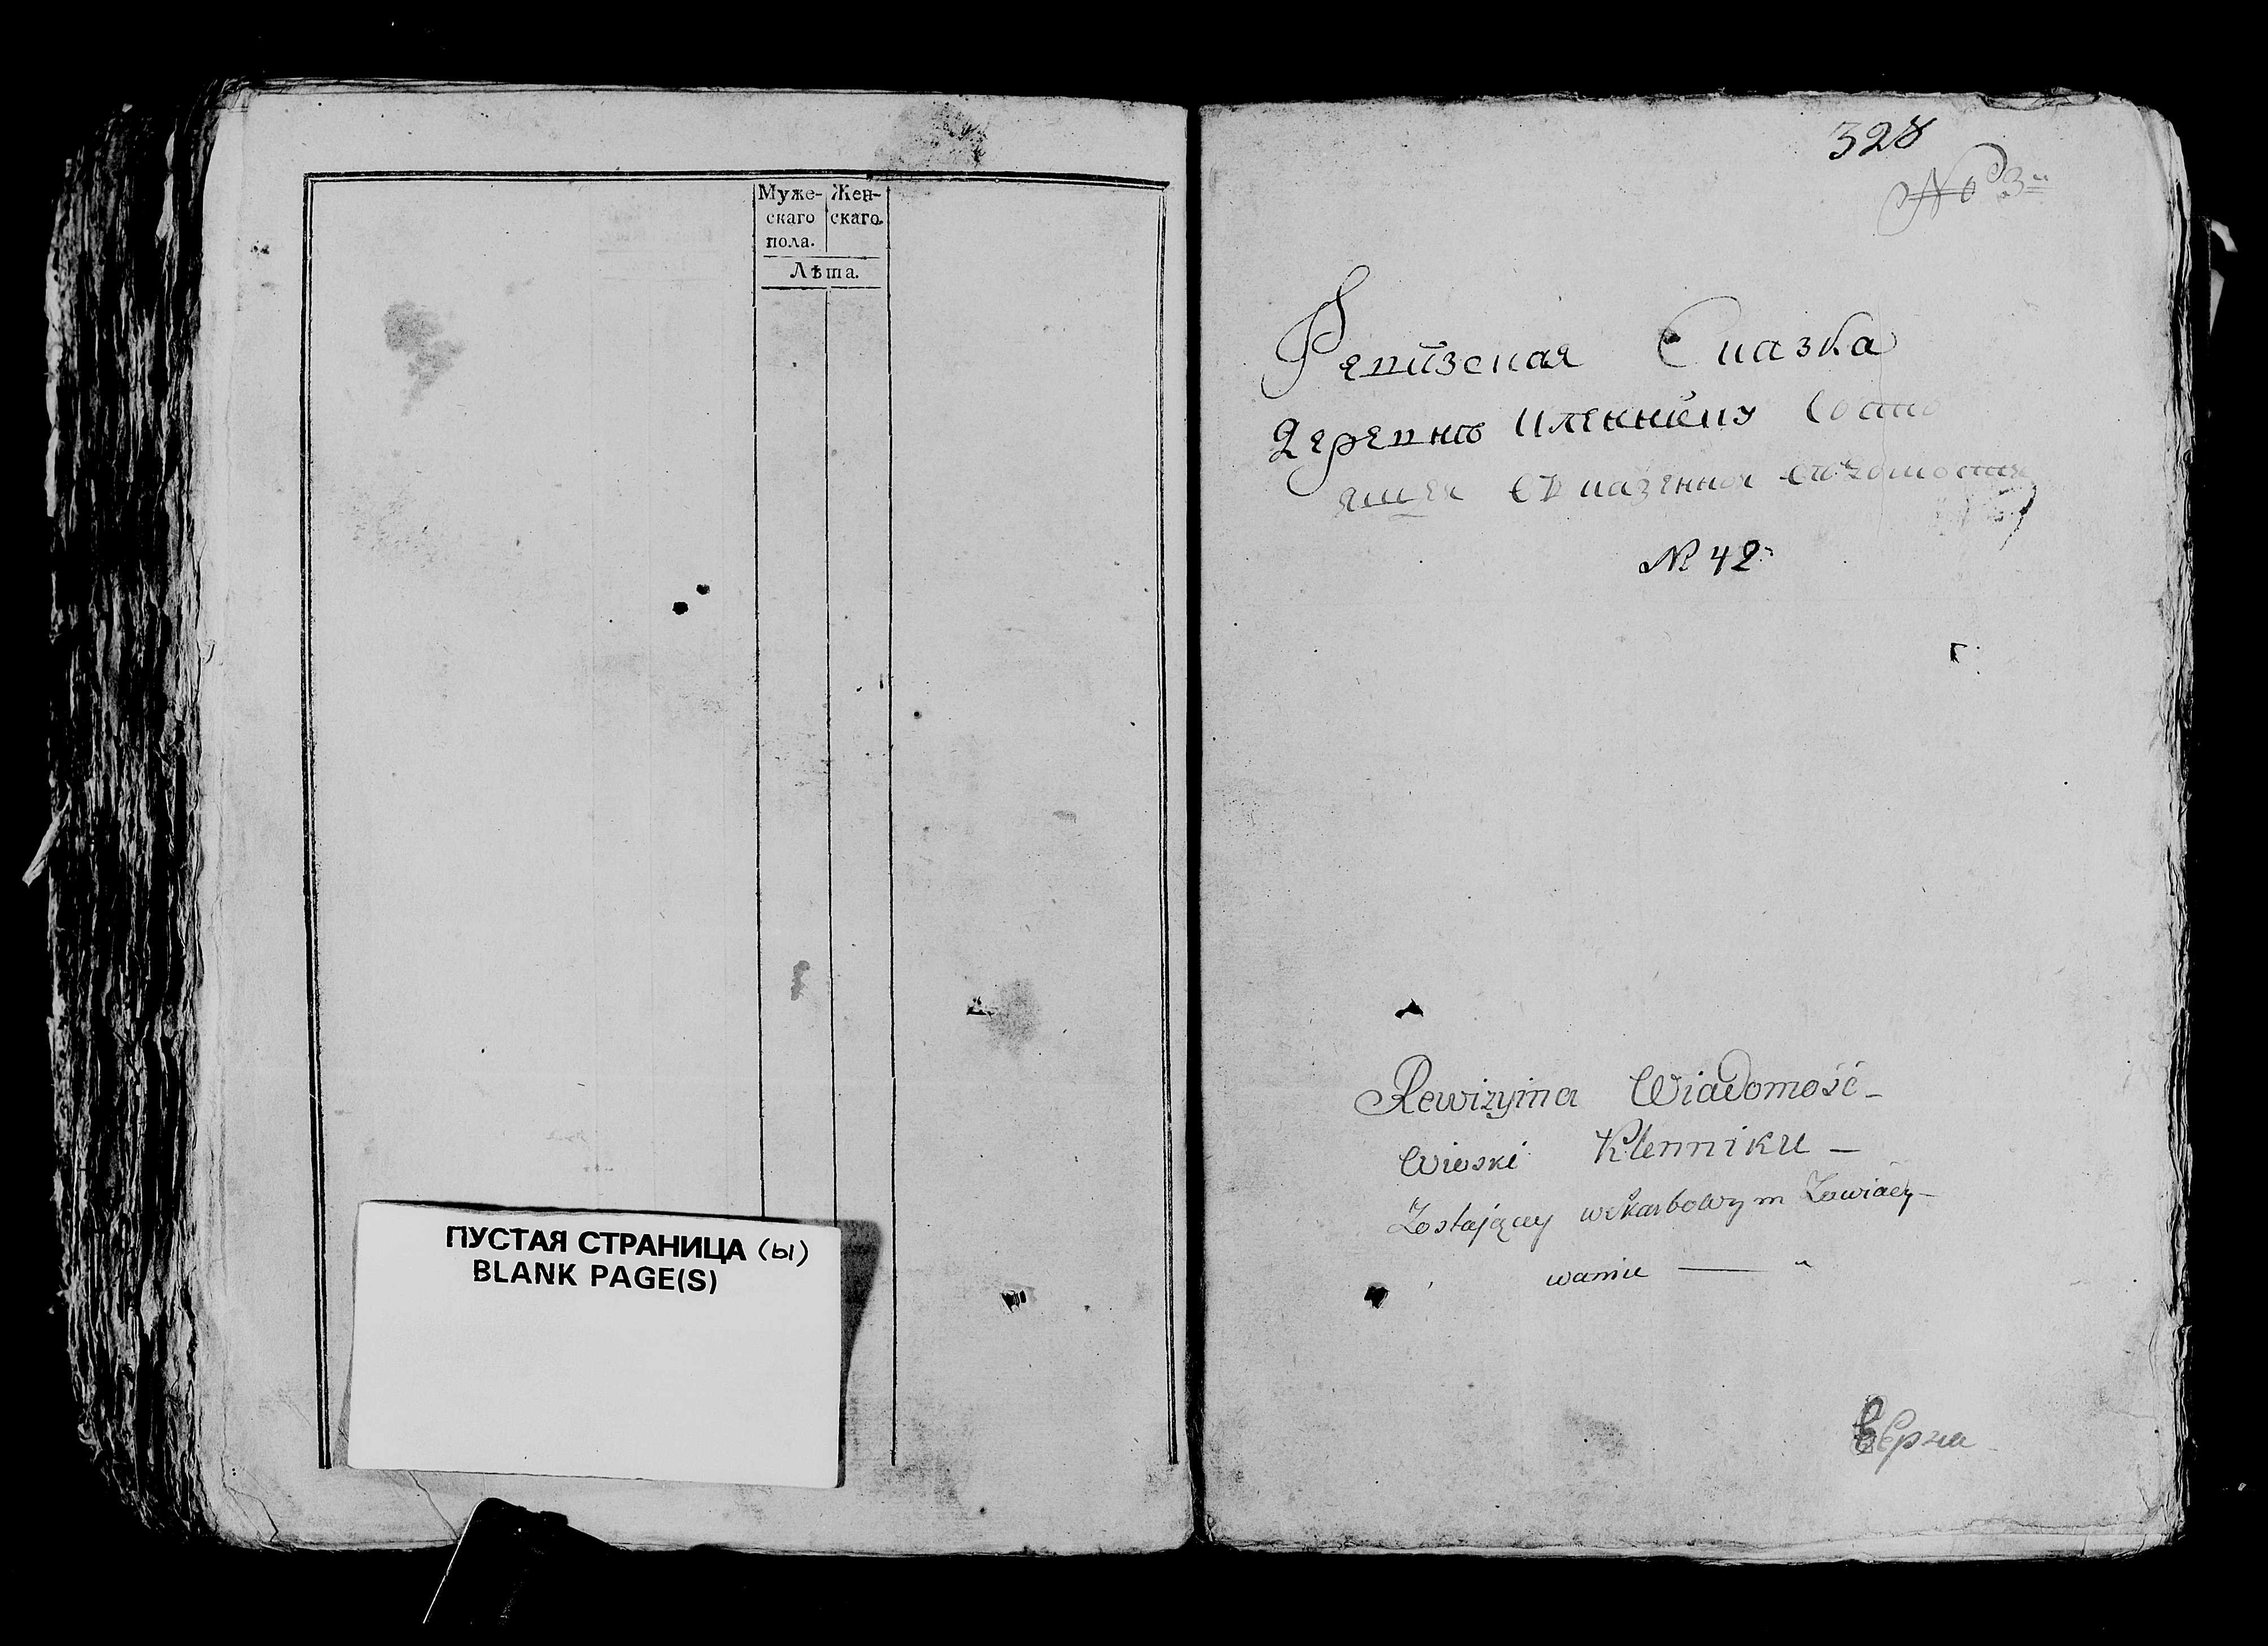 Муже- Жен-
скаго скаго.
пола.
Лѣта.
ПУСТАЯ СТРАНИЦА (ы)
BLANK PAGE(S)
328
No 3
Ревизская Сказка
Деревнѣ Кленнику Состо
ящея въ казенной
№ 42
Rewizyina Wiadomość
Wioski Klenniku
Zostaiącey wskarbowym Zawiady-
waniu